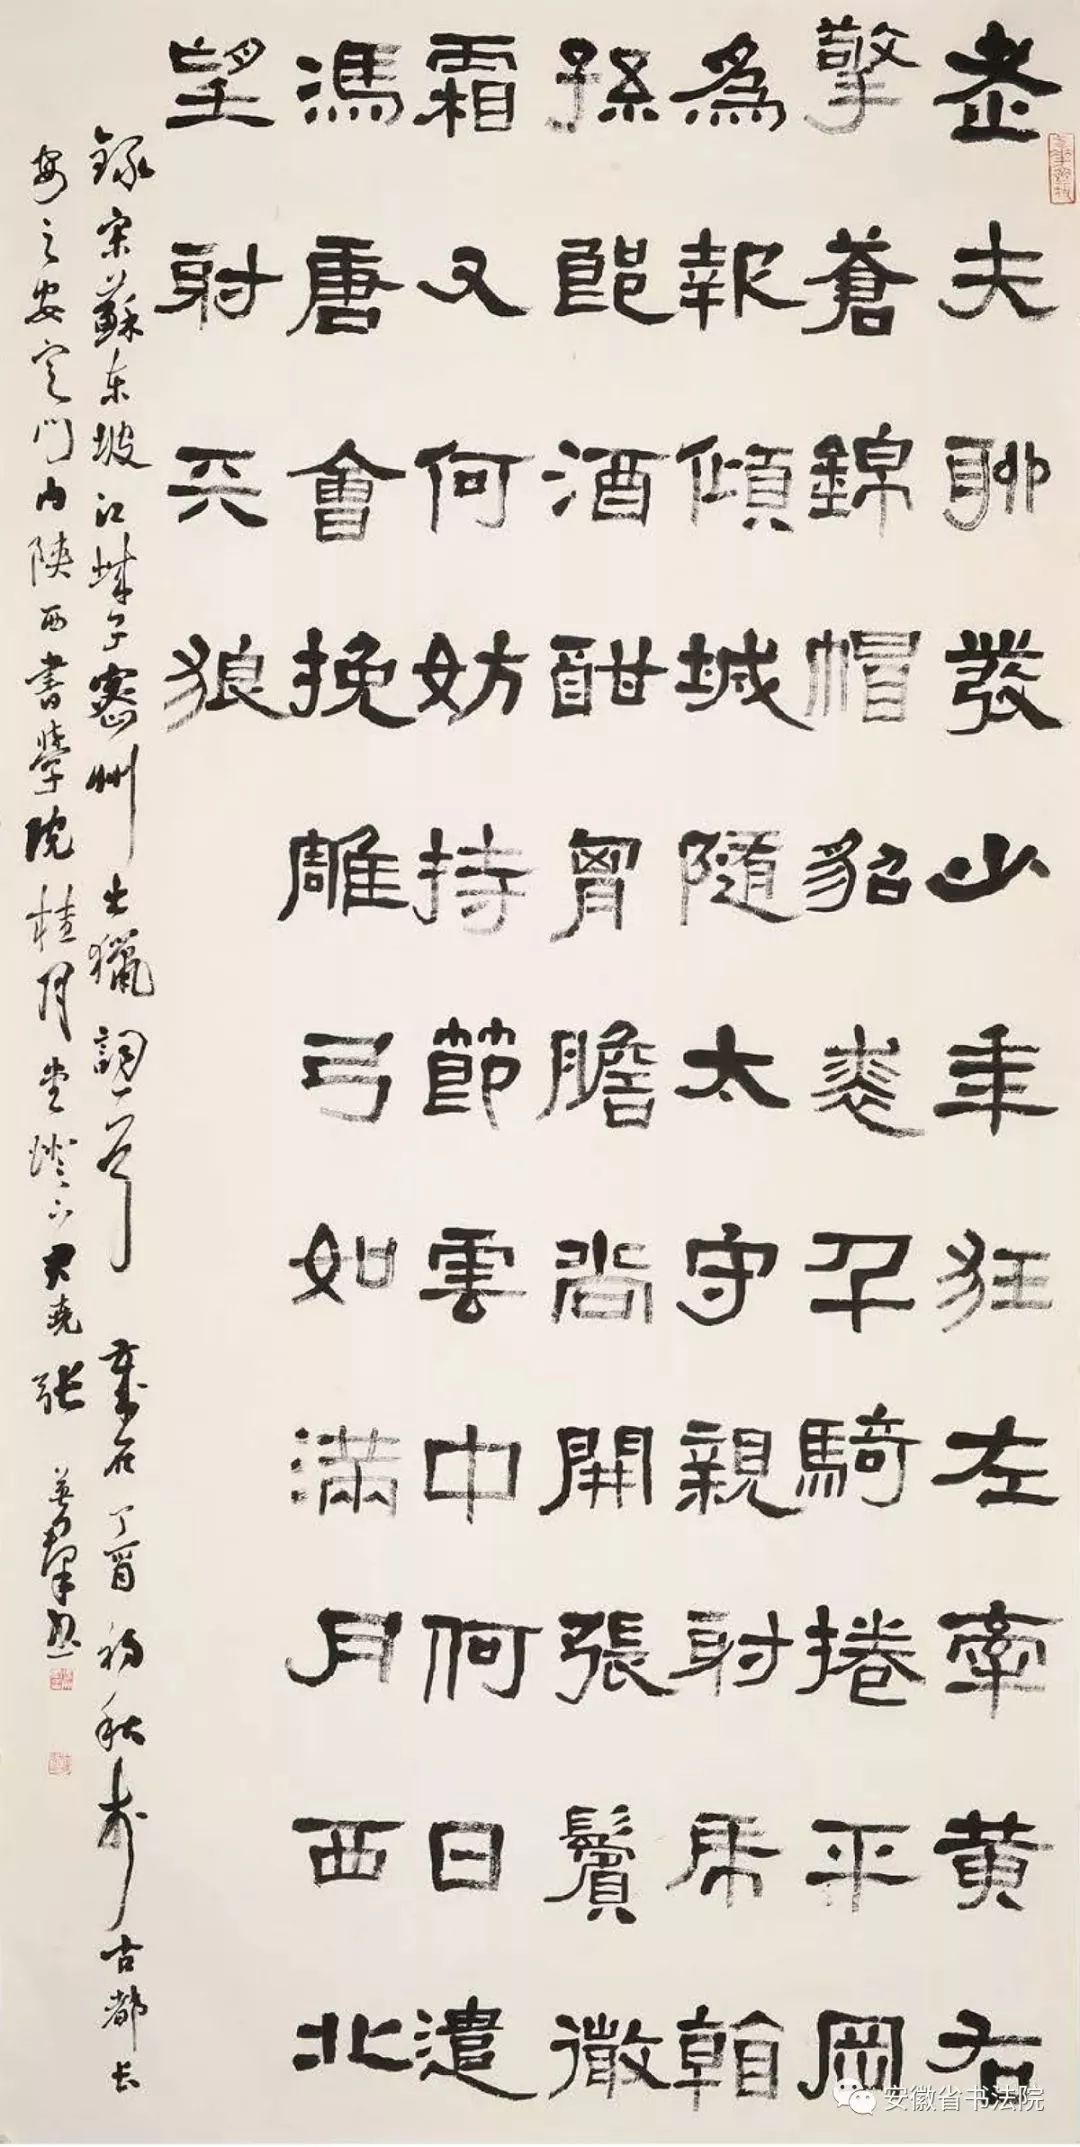 老夫聊發少年狂左牽黃右
擎蒼錦帽貂裘千騎捲平岡
為報傾城隨太守親射虎看
孫郎酒酣胷膽尚開張鬢微
霜又何妨持節雲中何日遣
馮唐會挽雕弓如滿月西北
望射天狼
錄宋蘇东坡江城子密州出獵詞一首 歲在丁酉初秋於古都长
安之安定門内陝西書學院桂月堂燈下大堯張英群書
安徽省书法院